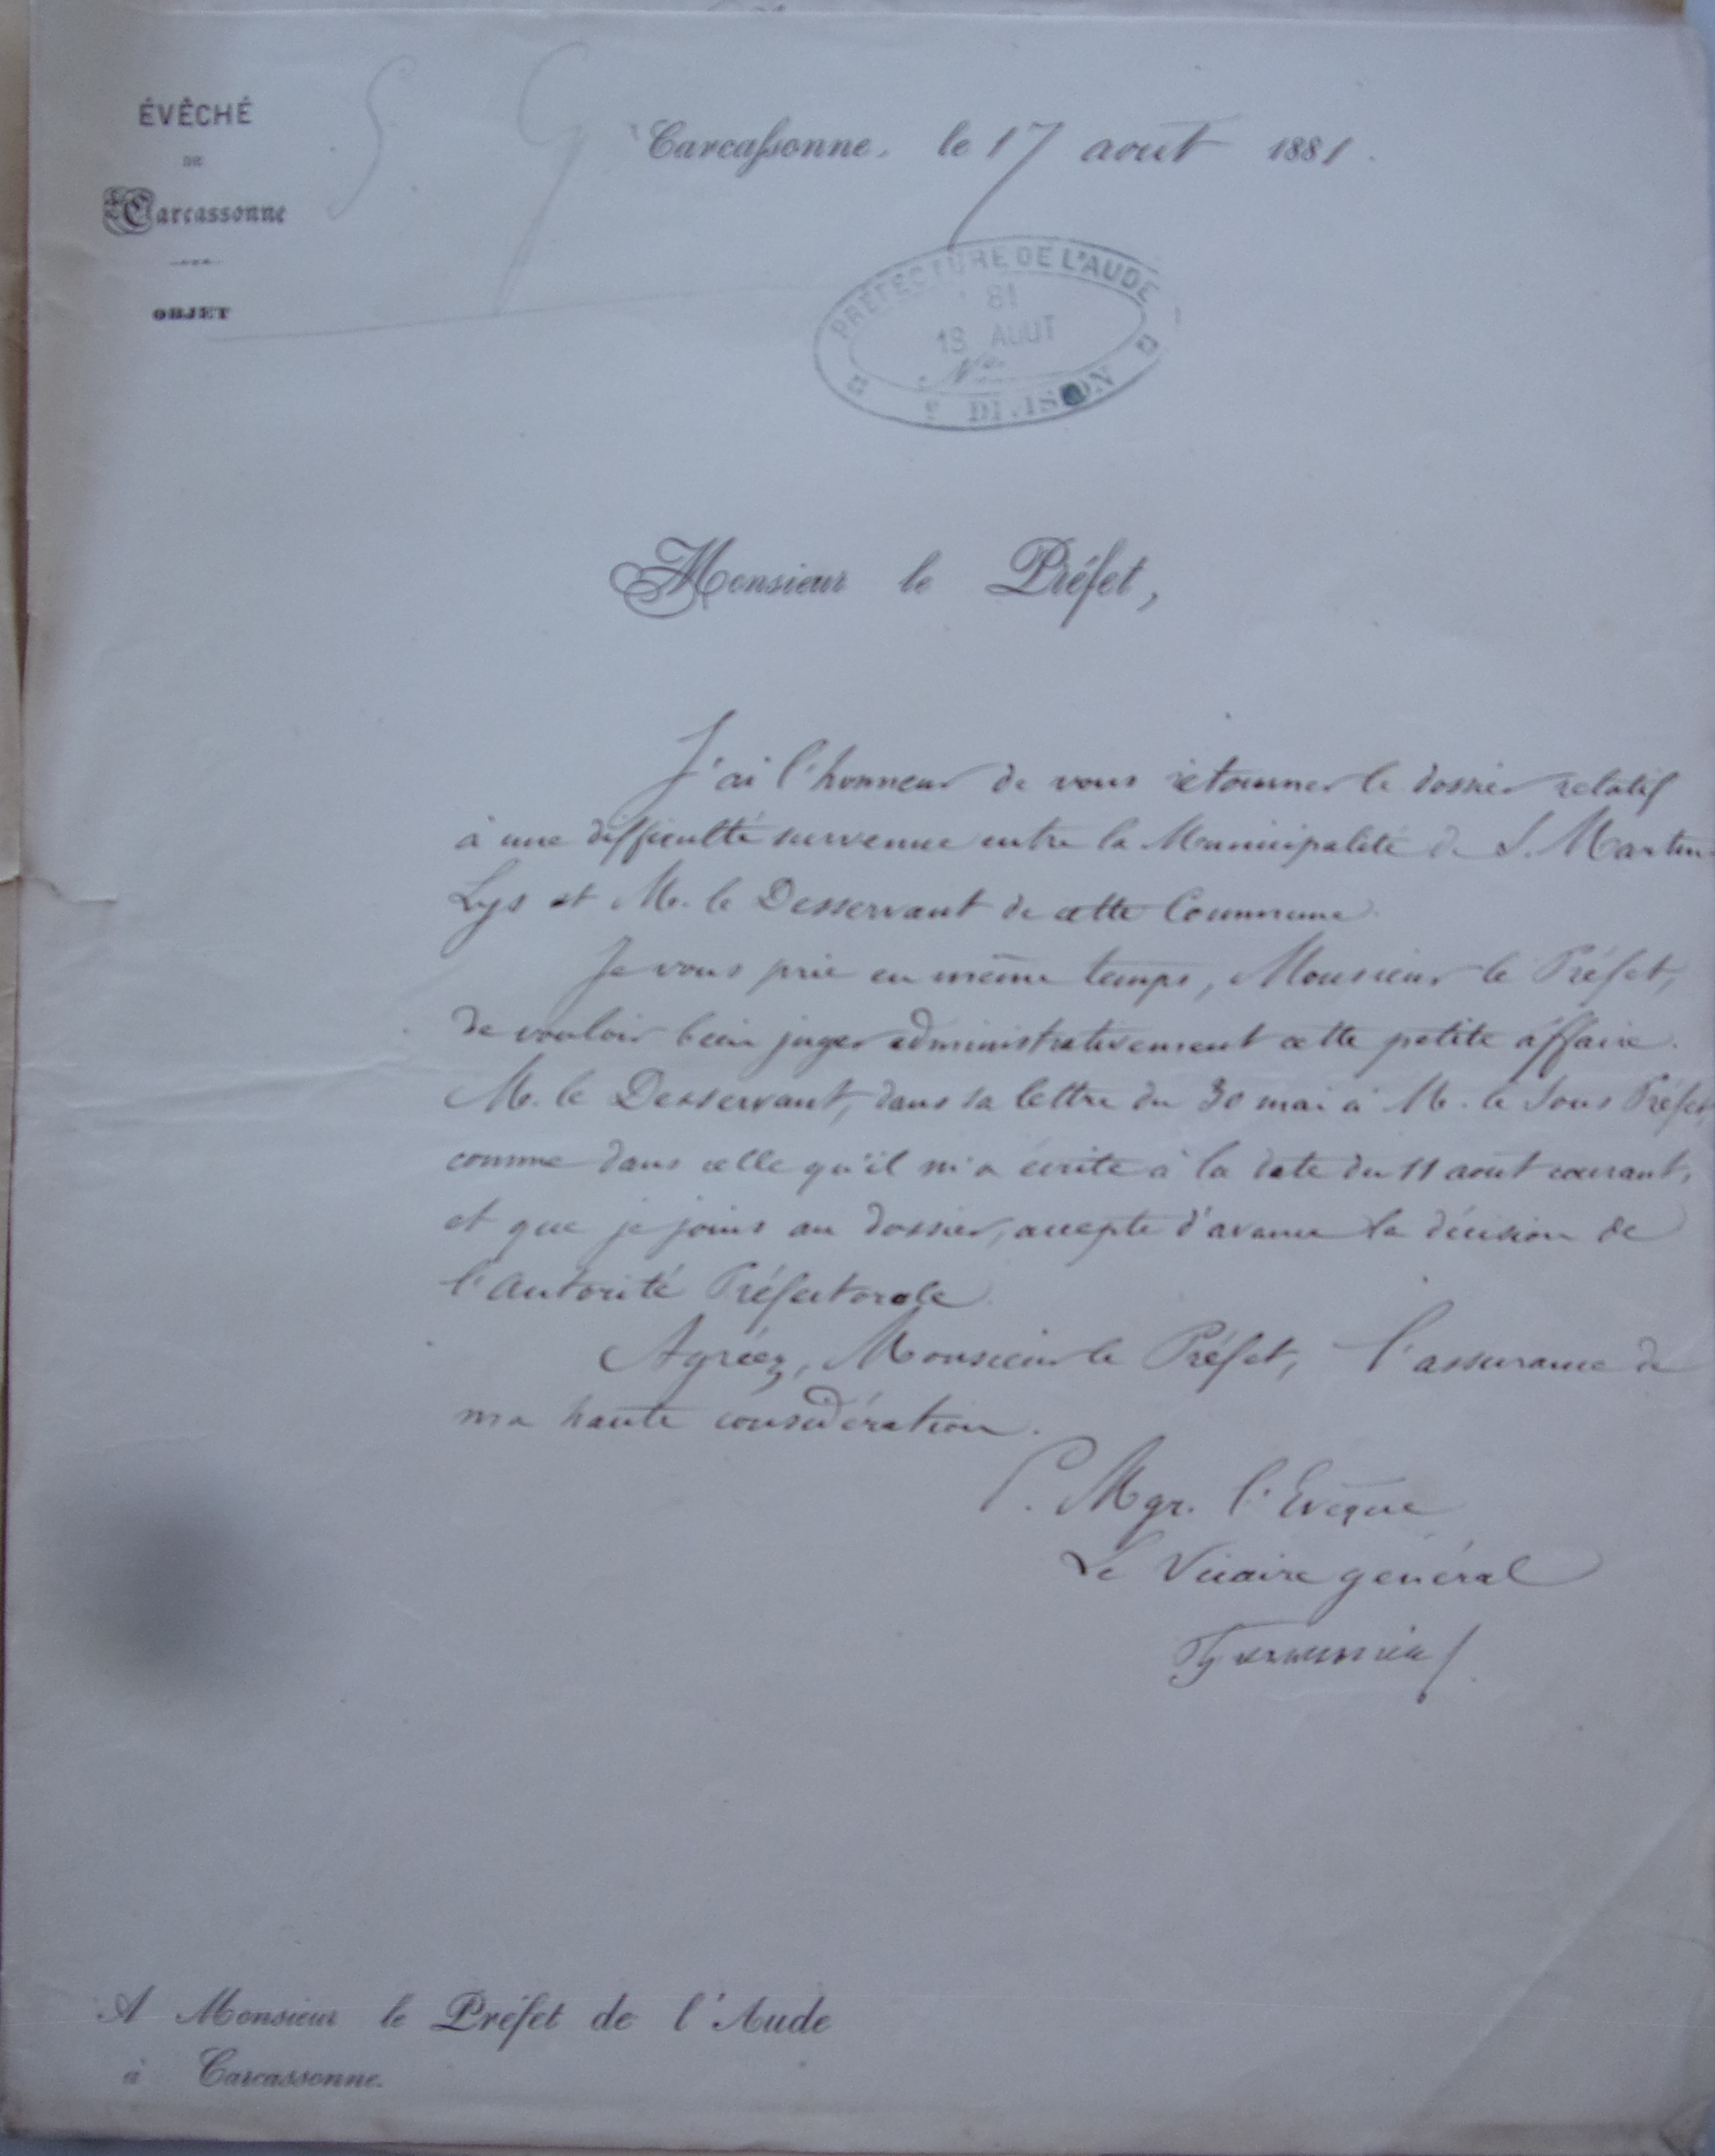 ÉVÊCHÉ
DE
Carcassonne
OBJET
S. G.
Carcassonne, le 17 aout 1881.
PRÉFECTURE DE L'AUDE
81
18 AOUT
No
DIVISION
Monsieur le Préfet,
J'ai l'honneur de vous retourner le dossier relatif
à une difficulté survenue entre la Municipalité de S. Martin
Lys et M. le Desservant de cette Commune.
Je vous prie en même temps, Monsieur le Préfet,
de vouloir bien juger administrativement cette petite affaire.
M. le Desservant, dans sa lettre du 30 mai à M. le Sous Préfet,
comme dans celle qu'il m'a écrite à la date du 11 aout courant,
et que je joins au dossier, accepte d'avance la décision de
l'autorité Préfectorale.
Agréez, Monsieur le Préfet, l'assurance de
ma haute considération.
P. Mgr. l'Evêque
Le Vicaire général
A Monsieur le Préfet de l'Aude
à Carcassonne.